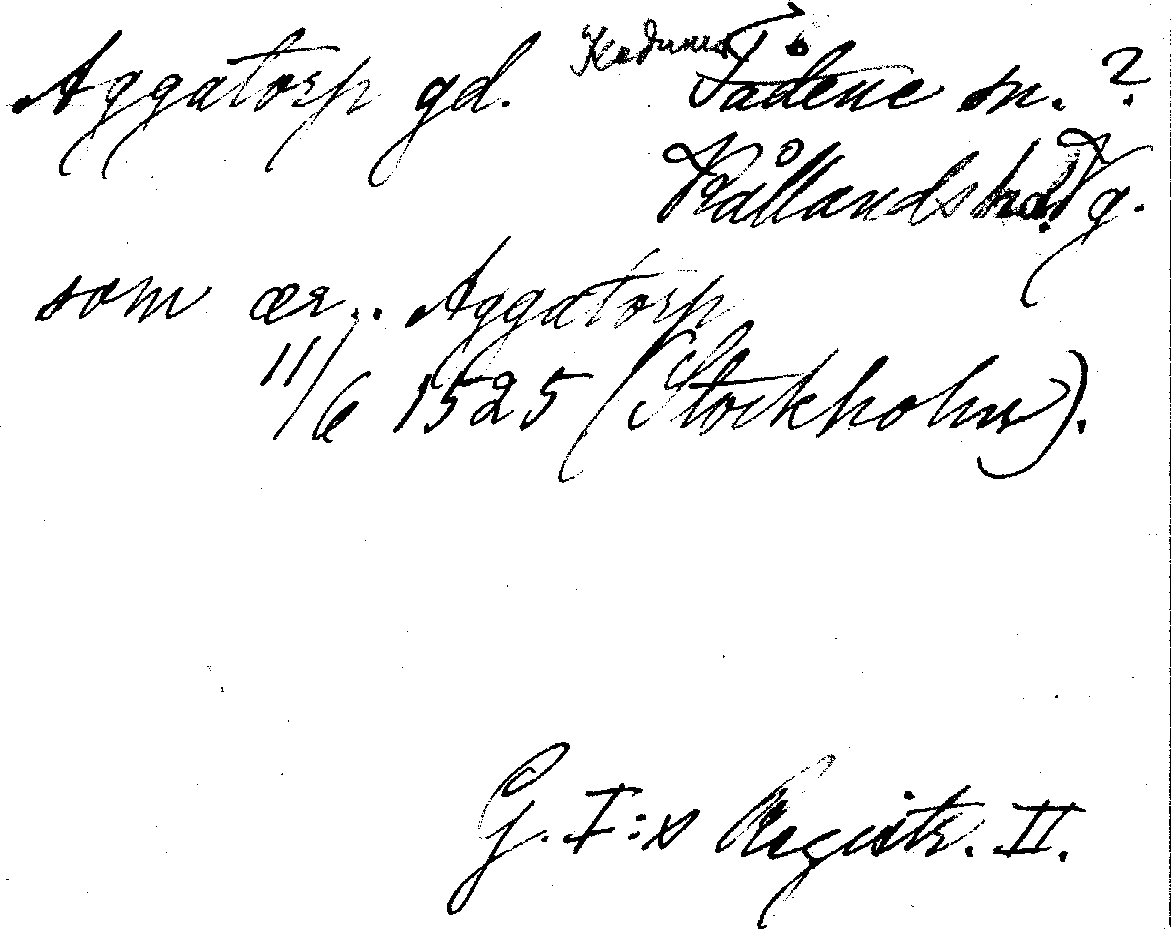 Aggatorp gd. Tådene sn. ?
Kållands hd Vg.
som ær .. Aggatorp
11/6 1525 (Stockholm).
G. I:s Registr. II.